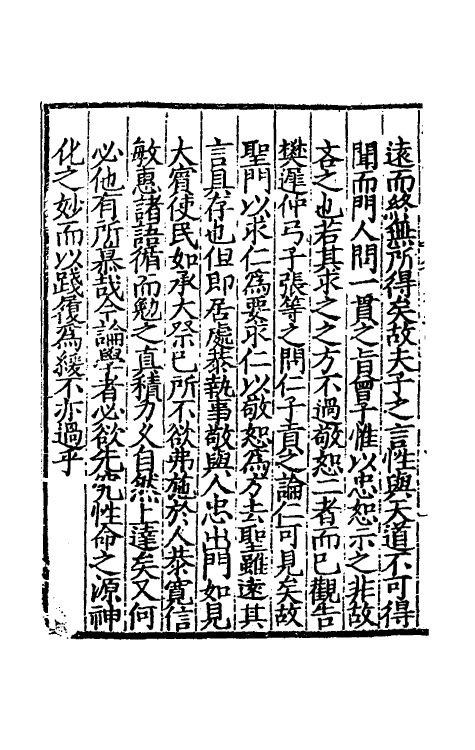 遠而終無所得矣故夫子之言性與天道不可得
聞而門人問一貫之旨曾子惟以忠恕示之非故
吝之也若其求之之方不過敬恕二者而已觀告
樊遲仲弓子張等之問仁子貢之論仁可見矣故
聖門以求仁為要求仁以敬恕為方去聖雖遠其
言具存也但即居處恭執事敬與人忠出門如見
大賓使民如承大祭已所不欲弗施於人恭寬信
敏惠諸語循而勉之真積力久自然上達矣又何
必他有所慕哉今論學者必欲先究性命之源神
化之妙而以踐履為緩不亦過乎